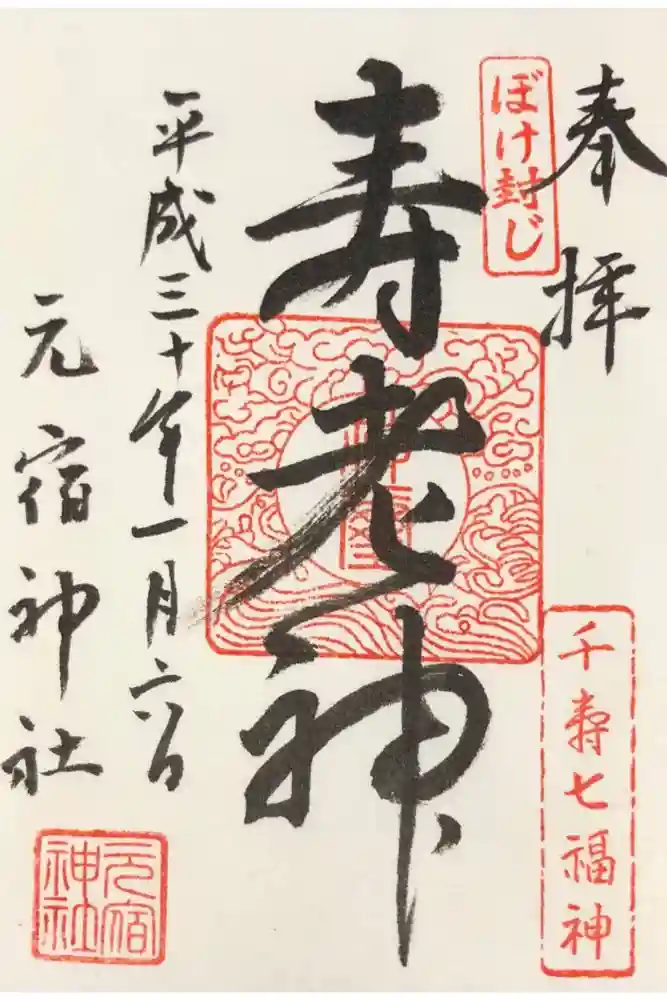 奉拝
ぼけ封じ
千寿七福神
寿老神
平成三十年一月六日
元宿神社
元宿神社